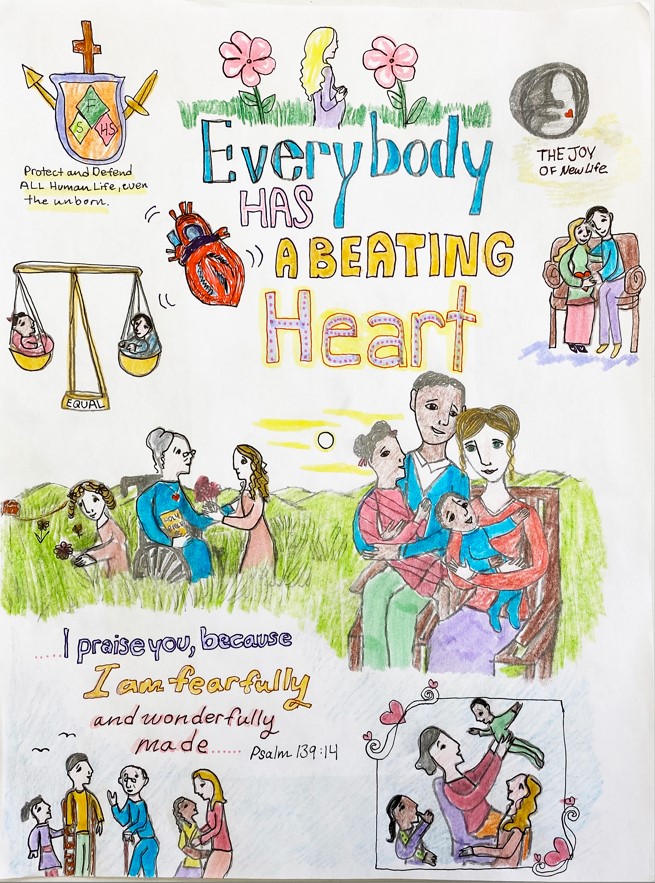 F
S
HS
Protect and Defend
ALL Human Life, even
the unborn.
Everybody
HAS
A BEATING
Heart
THE JOY
OF New Life.
EQUAL
.....I praise you, because
I am fearfully
and wonderfully
made...... Psalm 139:14